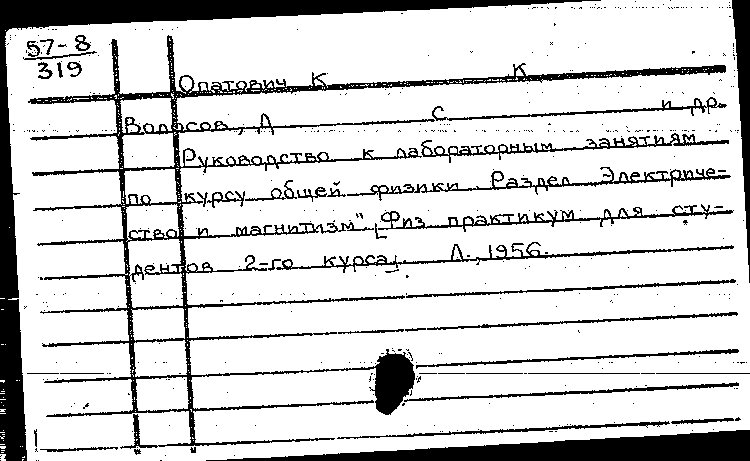 57-8
319
Опатович К К
Волосов, Д С и др.
Руководство к лабораторным занятиям
по курсу общей физики Раздел Электриче-
ство и магнитизм" [Физ практикум для сту-
дентов 2-го курса]. Л., 1956.